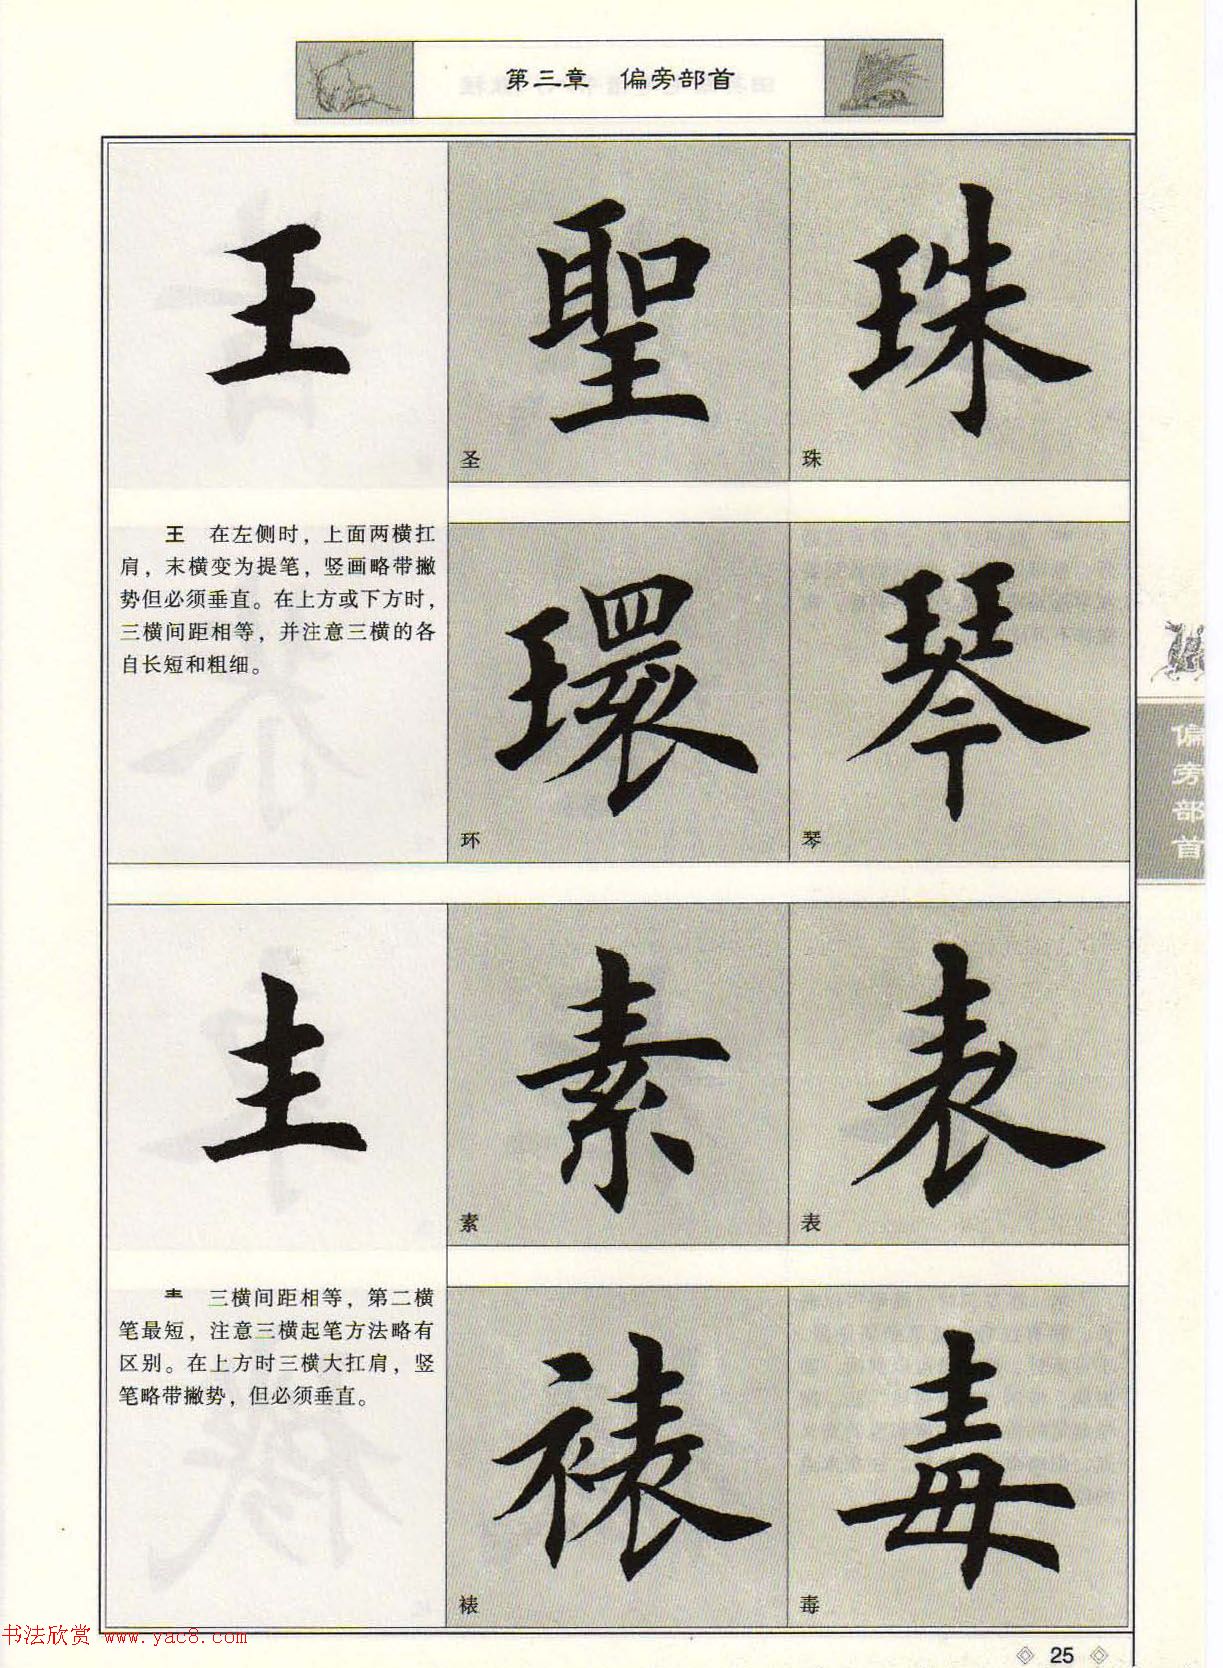 第三章　偏旁部首
王
聖
珠
圣
珠
王　在左侧时，上面两横扛
肩，末横变为提笔，竖画略带撇
势但必须垂直。在上方或下方时，
三横间距相等，并注意三横的各
自长短和粗细。
環
琴
环
琴
偏旁部首
龶
素
表
素
表
龶　三横间距相等，第二横
笔最短，注意三横起笔方法略有
区别。在上方时三横大扛肩，竖
笔略带撇势，但必须垂直。
裱
毒
裱
毒
书法欣赏 www.yac8.com
25